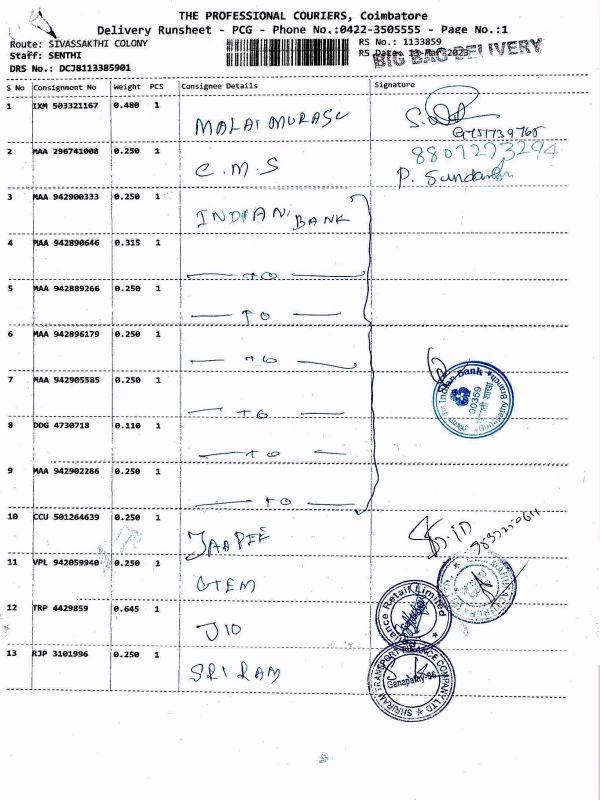 THE PROFESSIONAL COURIERS, Coimbatore
Delivery Runsheet - PCG - Phone No.:0422-3505555 - Page No.:1
Route: SIVASSAKTHI COLONY
RS No.: 1133859
Staff: SENTHI
RS Date: 13-Mar-2023
BIG BAG DELIVERY
DRS No.: DCJB113385901
S No Consignment No Weight PCS Consignee Details Signature
1 IXM 503321167 0.480 1 MALAI MURASU
2 MAA 296741008 0.250 1 C.M.S
8807273294
P. Sundaram
3 MAA 942900333 0.250 1 INDIAN BANK
4 MAA 942890646 0.315 1
5 MAA 942889266 0.250 1
6 MAA 942896179 0.250 1
7 MAA 942905585 0.250 1
Indian Bank
00359
Ganapathy Branch
8 DDG 4730718 0.110 1
9 MAA 942902286 0.250 1
10 CCU 501264639 0.250 1 JAAPEE
11 VPL 942059940 0.250 1 GTEM
12 TRP 4429859 0.645 1 JIO
Reliance Retail Limited
13 RJP 3101996 0.250 1 SRI RAM
SHRIRAM TRANSPORT FINANCE COMPANY LTD
Ganapathy-06